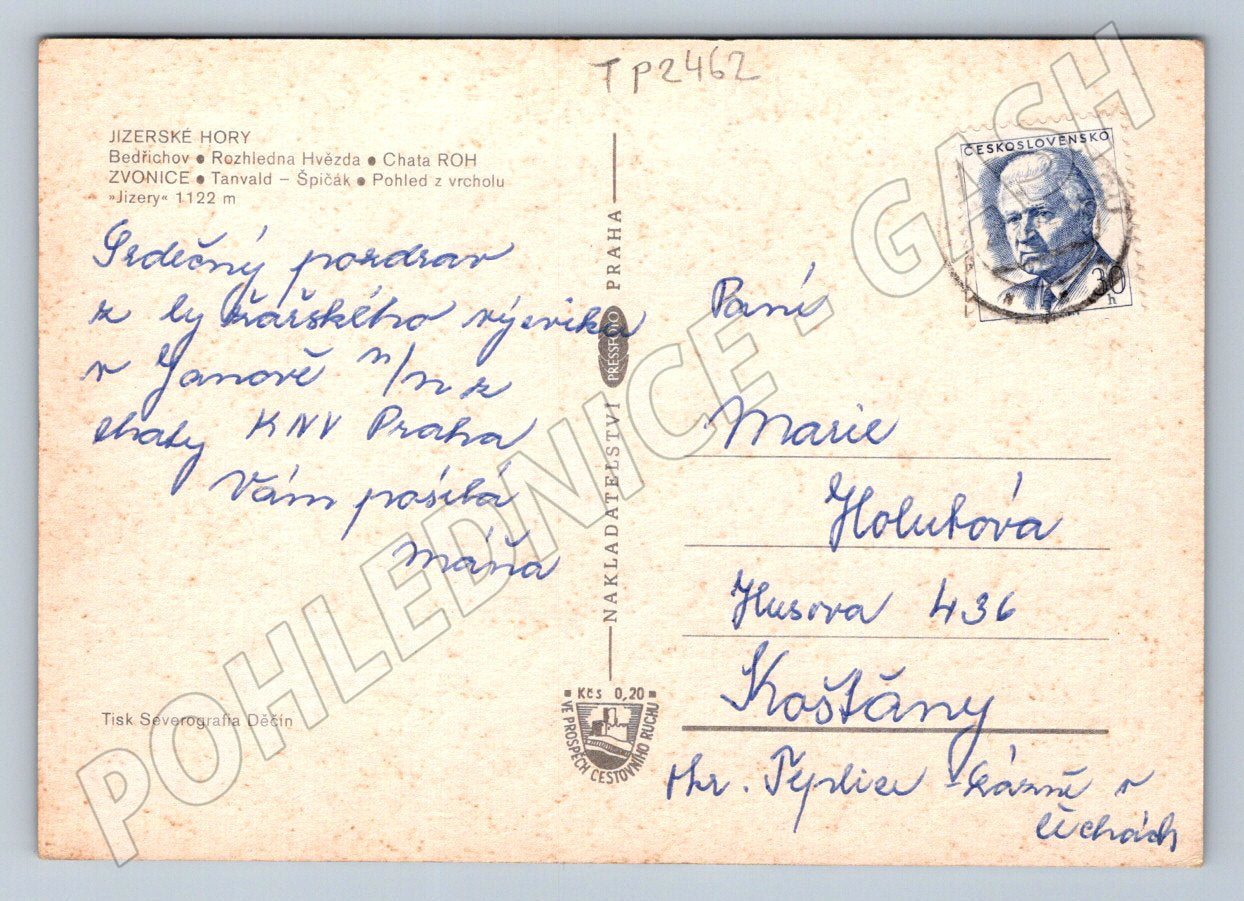 TP2462
JIZERSKÉ HORY
Bedřichov ● Rozhledna Hvězda ● Chata ROH
ZVONICE ● Tanvald – Špičák ● Pohled z vrcholu
»Jizery« 1122 m
Srdečný pozdrav
z lyžařského výcviku
v Janově n/n z
chaty KNV Praha
Vám posílá
Máňa
Tisk Severografia Děčín
NAKLADATELSTVÍ PRESSFOTO PRAHA
Kčs 0,20
VE PROSPĚCH CESTOVNÍHO RUCHU
ČESKOSLOVENSKO
30
h
Paní
Marie
Holubová
Husova 436
Košťány
okr. Teplice - Lázně v
Čechách
POHLEDNICE - GASH